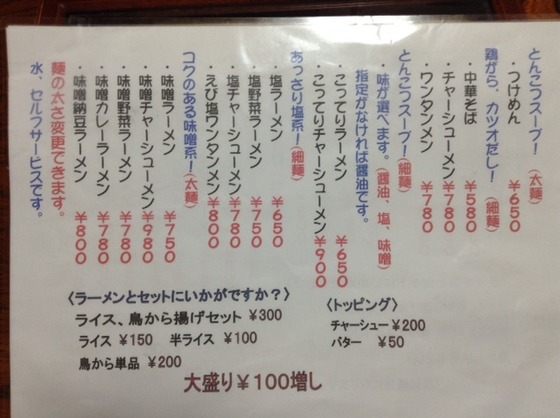 とんこつスープ！（太麺）
・つけめん ￥650
鶏がら、カツオだし！（細麺）
・中華そば ￥580
・チャーシューメン ￥780
・ワンタンメン ￥780
とんこつスープ！（細麺）
・味が選べます。（醤油、塩、味噌）
指定がなければ醤油です。
・こってりラーメン ￥650
・こってりチャーシューメン ￥900
あっさり塩系！（細麺）
・塩ラーメン ￥650
・塩野菜ラーメン ￥750
・塩チャーシューメン ￥780
・えび塩ワンタンメン ￥800
コクのある味噌系！（太麺）
・味噌ラーメン ￥750
・味噌チャーシューメン ￥980
・味噌野菜ラーメン ￥780
・味噌カレーラーメン ￥780
・味噌納豆ラーメン ￥800
麺の太さ変更できます。
水、セルフサービスです。
〈ラーメンとセットにいかがですか？〉
ライス、鳥から揚げセット ¥300
ライス ¥150 半ライス ¥100
鳥から単品 ¥200
〈トッピング〉
チャーシュー ¥200
バター ¥50
大盛り¥100増し